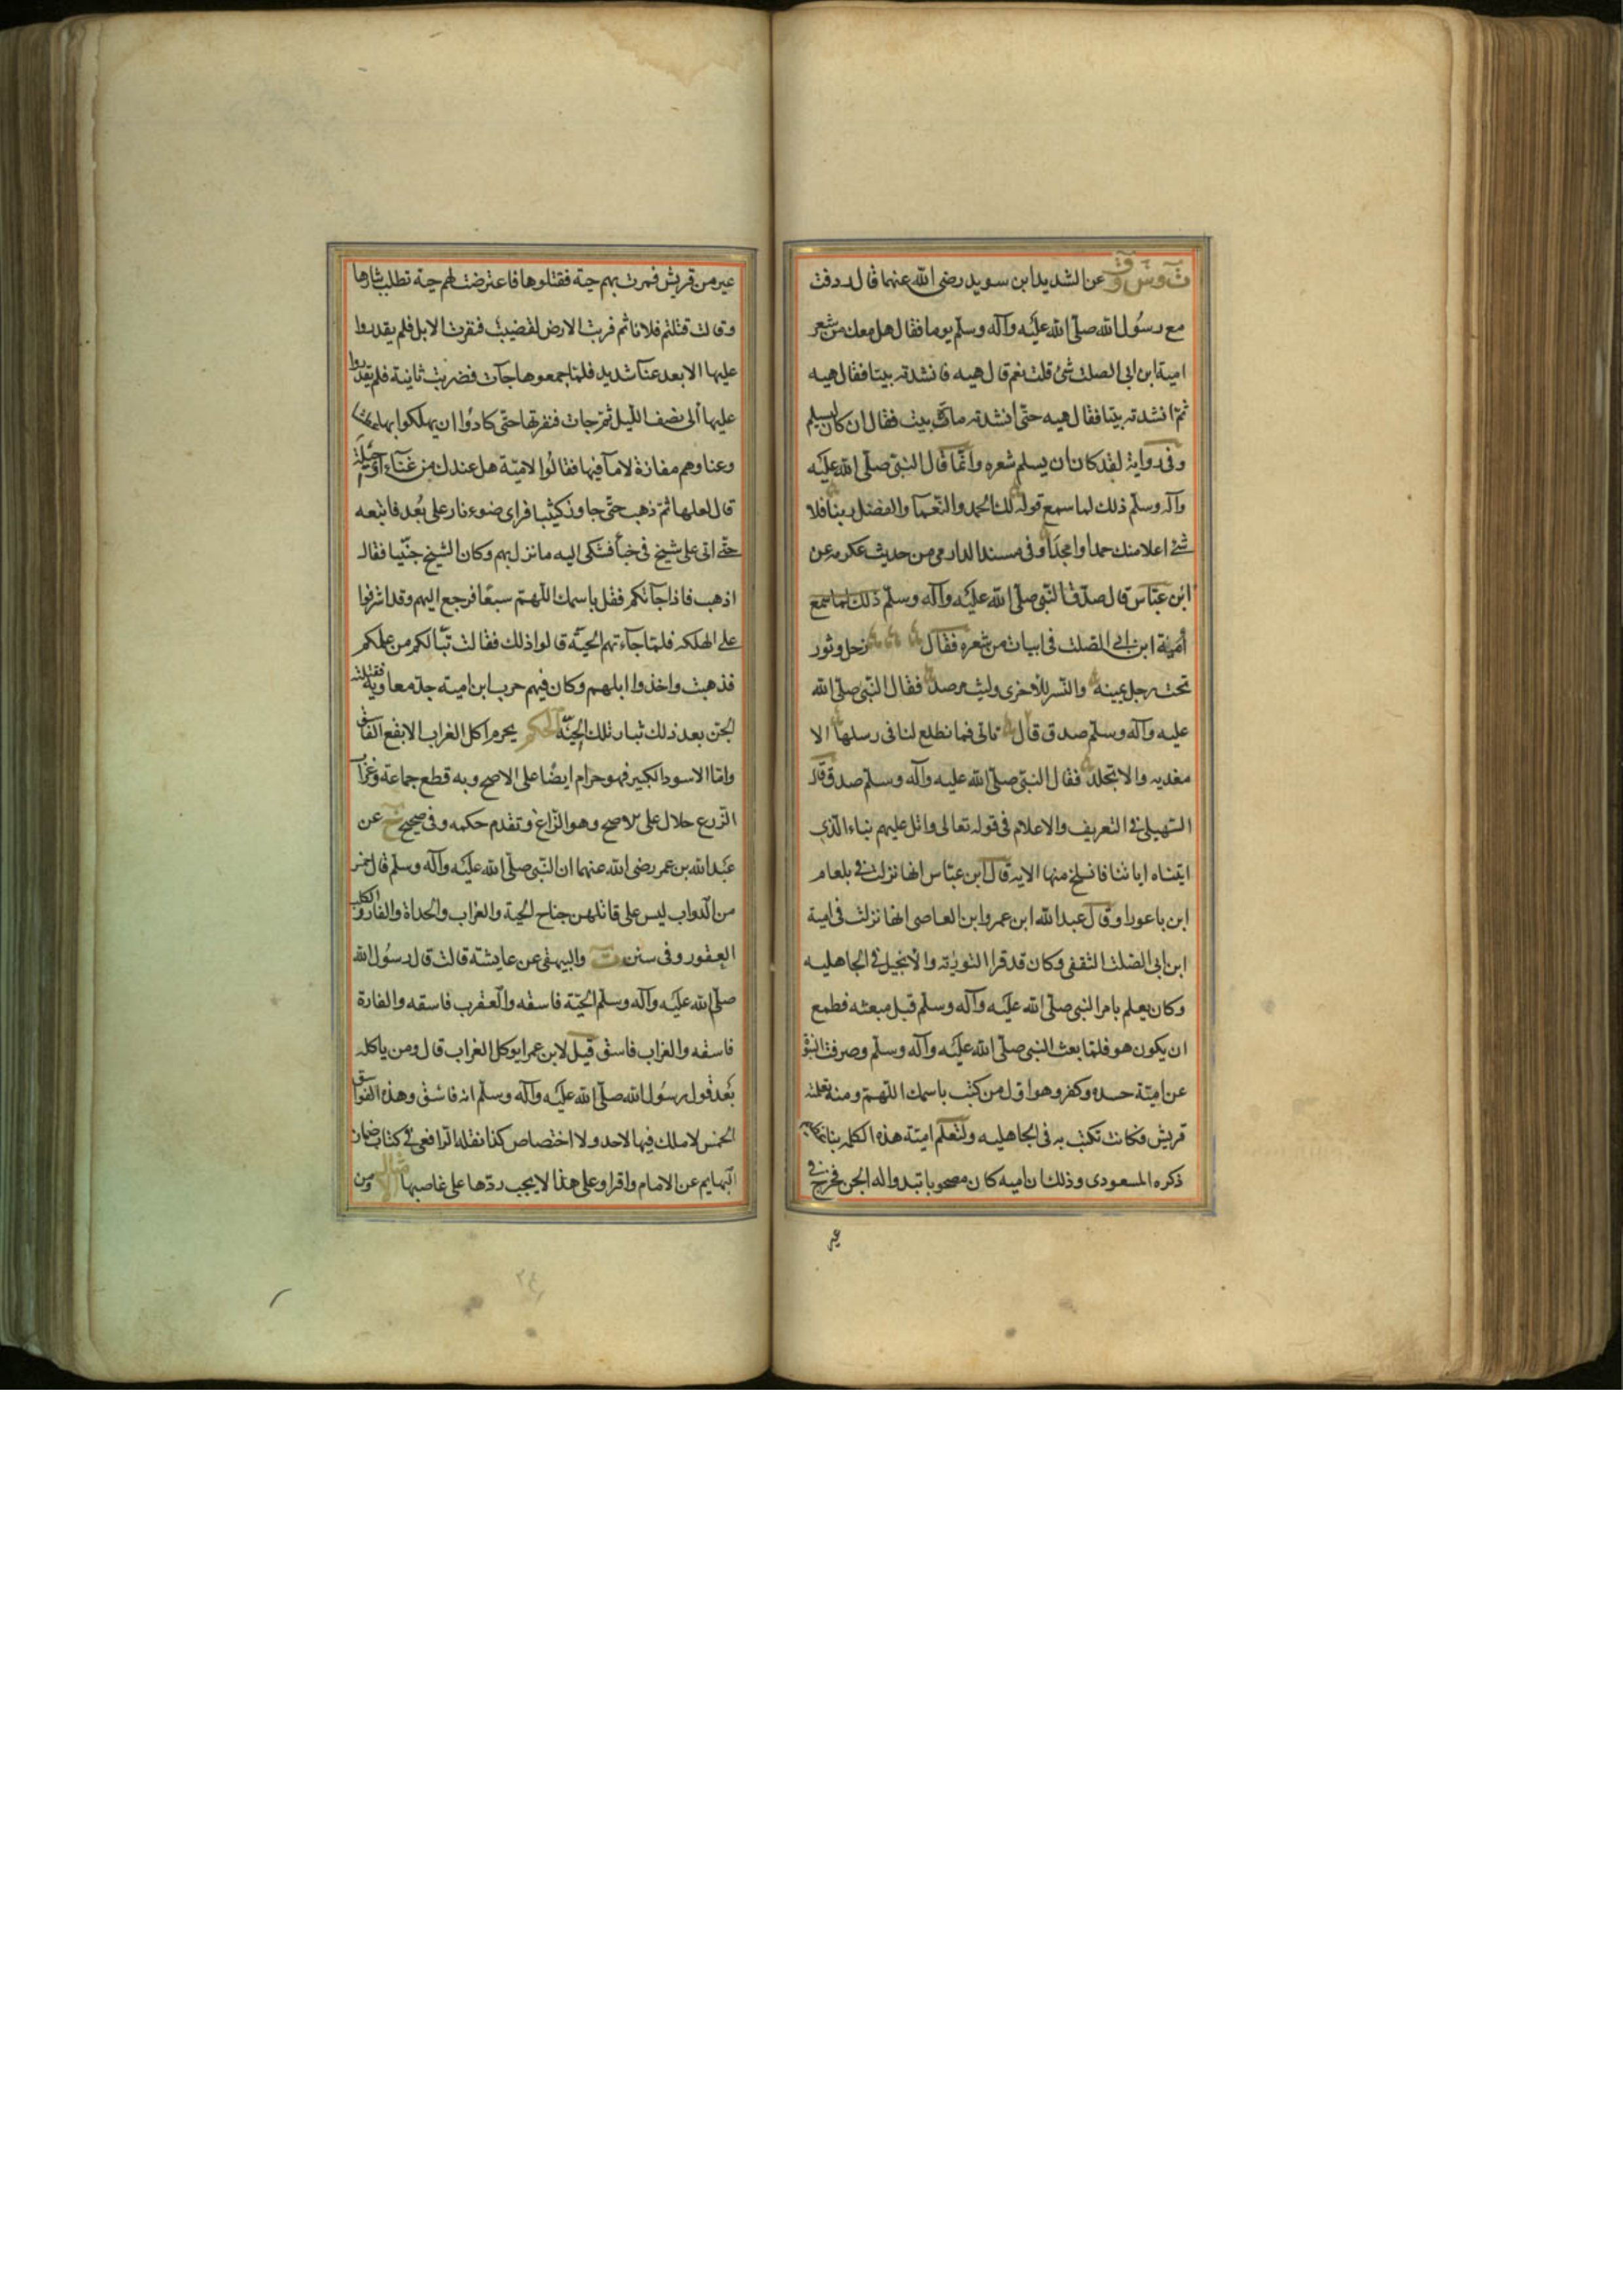 ت وس و ق عن الشديد ابن سويد رضى الله عنهما قال ردفت
مع رسول الله صلى الله عليه وآله وسلم يوما فقال هل معك من شعر
امية ابن ابى الصلت شئ قلت نعم قال هيه فانشدته بيتا فقال هيه
ثم انشدته بيتا فقال هيه حتى انشدته مائة بيت فقال ان كان ليسلم
وفى رواية لقد كان ان يسلم شعره وانما قال النبى صلى الله عليه
وآله وسلم ذلك لما سمع قوله لك الحمد والنعمآ والفضل ربنا فلا
شئ اعلا منك حمدا وامجدا وفى مسند الدارمى من حديث عكرمه عن
ابن عباس قال صدق النبى صلى الله عليه وآله وسلم ذلك لما سمع
أمية ابن ابى الصلت فى ابيات من شعره فقال زحل وثور
تحت رجل يمينه والنسر للأخرى وليث مرصد فقال النبى صلى الله
عليه وآله وسلم صدق قال تاتى فما تطلع لنا فى رسلها الا
معذبه والا تجلد فقال النبى صلى الله عليه وآله وسلم صدق قال
السهيلى فى التعريف والاعلام فى قوله تعالى واتل عليهم نباء الذى
اتيناه اياتنا فانسلخ منها الايه قال ابن عباس انها نزلت فى بلعام
ابن باعورا وقال عبد الله ابن عمروا بن العاصى انها نزلت فى امية
ابن ابى الصلت الثقفى وكان قد قرا التورية والانجيل فى الجاهليه
وكان يعلم بامر النبى صلى الله عليه وآله وسلم قبل مبعثه فطمع
ان يكون هو فلما بعث النبى صلى الله عليه وآله وسلم وصرفت النبوة
عن امية حسده وكفر وهو اول من كتب باسمك اللهم ومنه تعلمته
قريش فكانت تكتب به فى الجاهليه ولتعلم امية هذه الكلمه نبا
ذكره المسعودى وذلك ان اميه كان مصحوبا تبدوا له الجن فخرج فى
عير
عير من قريش فمرت بهم حية فقتلوها فاعترضت لهم حية تطلب بثارها
وقالت قتلتم فلانا ثم ضربت الارض بقضيب فنفرت الابل فلم يقدروا
عليها الا بعد عنآ شديد فلما جمعوها جآت فضربت ثانية فلم يقدروا
عليها الى نصف الليل ثم جات فنفرتها حتى كادوا ان يهلكوا بها عطشا
وعنا وهم مفازة لا مآ فيها فقالوا لامية هل عندك من غنآء او حيلة
قال لعلها ثم ذهب حتى جاوز كثيبا فراى ضوء نار على بعد فاتبعه
حتى اتى على شيخ فى خبأ فشكى اليه ما نزل بهم وكان الشيخ جنيا فقال
اذهب فاذا جآتكم فقل باسمك اللهم سبعا فرجع اليهم وقد اشرفوا
على الهلكه فلما جآءتهم الحية قالوا ذلك فقالت تبا لكم من علمكم
فذهبت واخذوا ابلهم وكان فيهم حرب ابن امية جد معاوية فقتلته
الجن بعد ذلك بثار تلك الحية الحكم يحرم اكل الغراب الابقع الفاسق
واما الاسود الكبير فهو حرام ايضا على الاصح وبه قطع جماعة وغراب
الزرع حلال على الاصح وهو الزاغ وتقدم حكمه وفى صحيح خ عن
عبد الله بن عمر رضى الله عنهما ان النبى صلى الله عليه وآله وسلم قال خمس
من الدواب ليس على قاتلهن جناح الحية والغراب والحداة والفارة والكلب
العقور وفى سنن ت والبيهقى عن عايشة قالت قال رسول الله
صلى الله عليه وآله وسلم الحية فاسقه والعقرب فاسقه والفارة
فاسقه والغراب فاسق قيل لابن عمر ايوكل الغراب قال ومن ياكله
بعد قول رسول الله صلى الله عليه وآله وسلم انه فاسق وهذه الفواسق
الخمس لا ملك فيها لاحد ولا اختصاص كذا نقله الرافعى فى كتاب ضمان
البهايم عن الامام واقرا وعلى هذا لا يجب ردها على غاصبها ومن